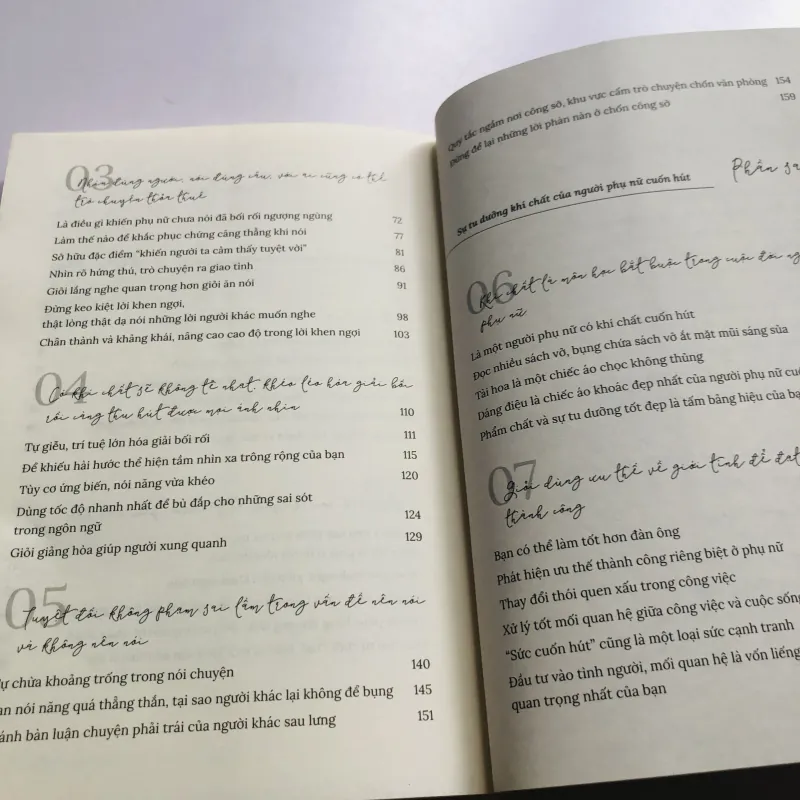 03
Nhìn đúng người, nói đúng câu, với ai cũng có thể
trò chuyện thân thuế
Là điều gì khiến phụ nữ chưa nói đã bối rối ngượng ngùng 72
Làm thế nào để khắc phục chứng căng thẳng khi nói 77
Sở hữu đặc điểm “khiến người ta cảm thấy tuyệt vời” 81
Nhìn rõ hứng thú, trò chuyện ra giao tình 86
Giỏi lắng nghe quan trọng hơn giỏi ăn nói 91
Đừng keo kiệt lời khen ngợi,
thật lòng thật dạ nói những lời người khác muốn nghe 98
Chân thành và khảng khái, nâng cao cao độ trong lời khen ngợi 103
04
Có khí chất sẽ không tẻ nhạt, khéo léo hóa giải bối
rối càng thu hút được mọi ánh nhìn 110
Tự giễu, trí tuệ lớn hóa giải bối rối 111
Để khiếu hài hước thể hiện tầm nhìn xa trông rộng của bạn 115
Tùy cơ ứng biến, nói năng vừa khéo 120
Dùng tốc độ nhanh nhất để bù đắp cho những sai sót
trong ngôn ngữ 124
Giỏi giảng hòa giúp người xung quanh 129
05
Tuyệt đối không phạm sai lầm trong vấn đề nên nói
và không nên nói
ự chừa khoảng trống trong nói chuyện 140
ạn nói năng quá thẳng thắn, tại sao người khác lại không để bụng 145
ánh bàn luận chuyện phải trái của người khác sau lưng 151
Quy tắc ngầm nơi công sở, khu vực cấm trò chuyện chốn văn phòng 154
Đừng để lại những lời phàn nàn ở chốn công sở 159
Phần
Sự tu dưỡng khí chất của người phụ nữ cuốn hút
06
Khí chất là môn học bắt buộc trong cuộc đời
phụ nữ
Là một người phụ nữ có khí chất cuốn hút
Đọc nhiều sách vở, bụng chứa sách vở ắt mặt mũi sáng sủa
Tài hoa là một chiếc áo chọc không thủng
Dáng điệu là chiếc áo khoác đẹp nhất của người phụ nữ
Phẩm chất và sự tu dưỡng tốt đẹp là tấm bảng hiệu của
07
Giỏi dùng ưu thế về giới tính để đạt
thành công
Bạn có thể làm tốt hơn đàn ông
Phát hiện ưu thế thành công riêng biệt ở phụ nữ
Thay đổi thói quen xấu trong công việc
Xử lý tốt mối quan hệ giữa công việc và cuộc sống
“Sức cuốn hút” cũng là một loại sức cạnh tranh
Đầu tư vào tình người, mối quan hệ là vốn liếng
quan trọng nhất của bạn